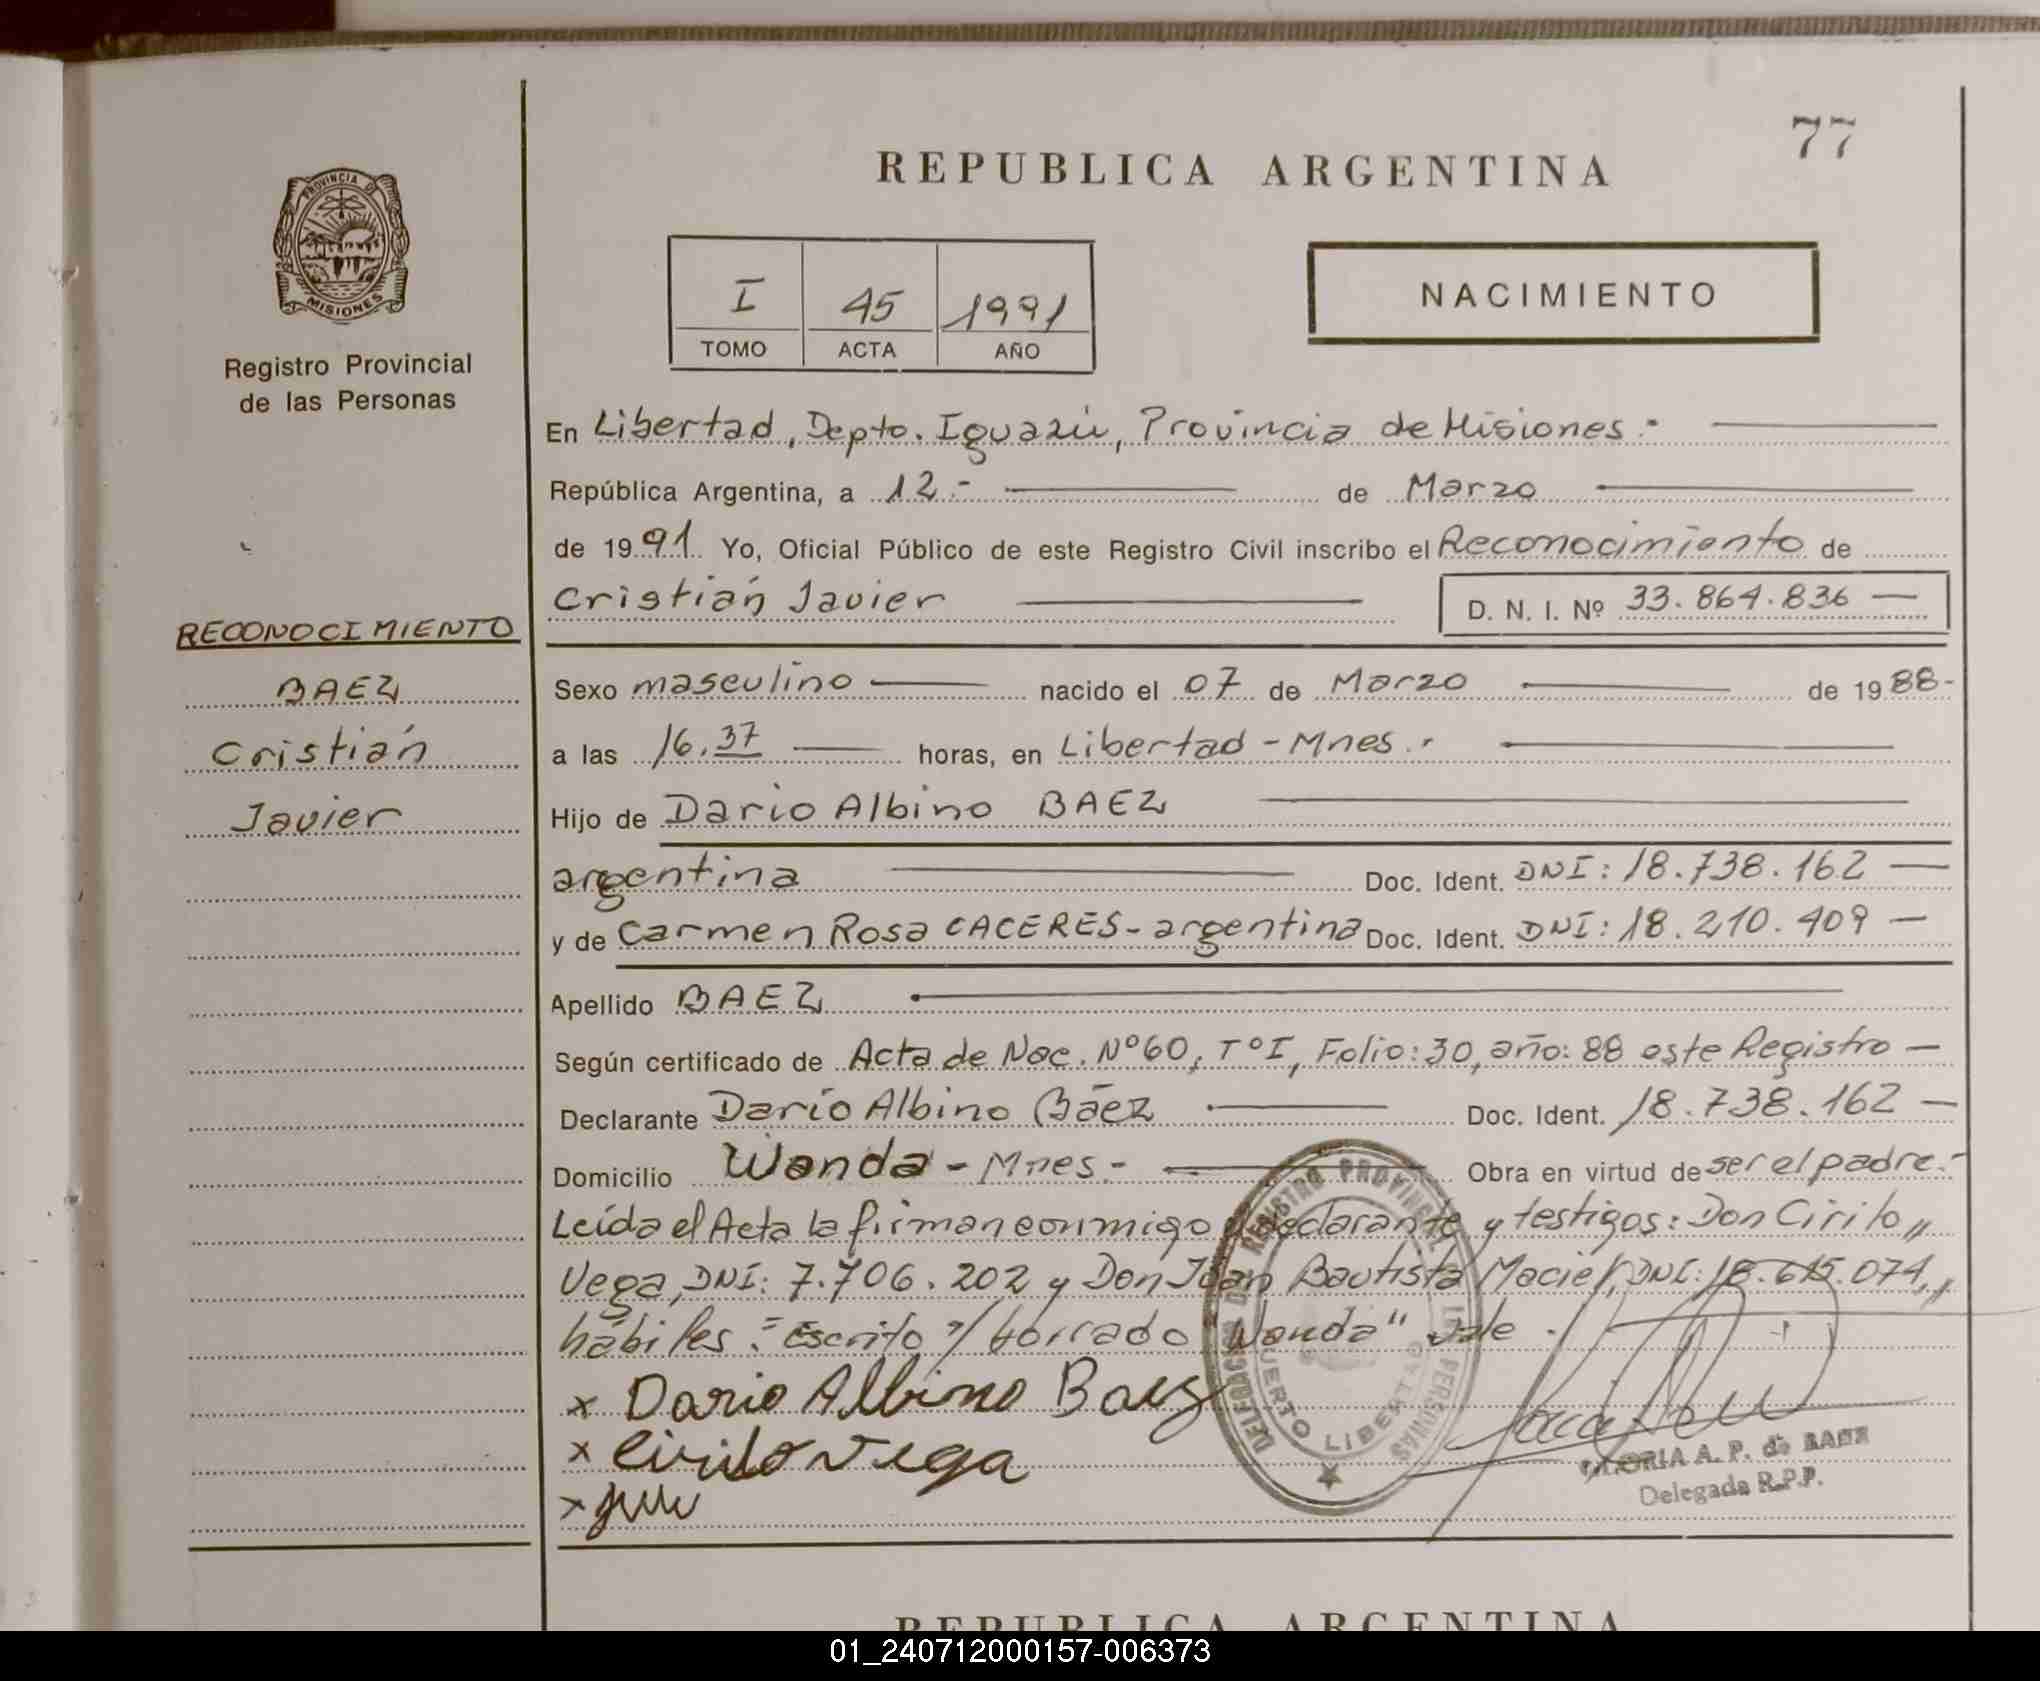 77
REPUBLICA ARGENTINA
PROVINCIA DE
MISIONES
Registro Provincial
de las Personas
I 45 1991
TOMO ACTA AÑO
NACIMIENTO
En Libertad, Depto. Iguazú, Provincia de Misiones.-
República Argentina, a 12.- de Marzo
de 1991 Yo, Oficial Público de este Registro Civil inscribo el Reconocimiento de
Cristián Javier D. N. I. Nº 33.864.836 —
RECONOCIMIENTO
BAEZ
Cristián
Javier
Sexo masculino nacido el 07 de Marzo de 1988-
a las 16.37 horas, en Libertad - Mnes.-
Hijo de Dario Albino BAEZ
argentina Doc. Ident. DNI: 18.738.162 —
y de Carmen Rosa CACERES - argentina Doc. Ident. DNI: 18.210.409 —
Apellido BAEZ
Según certificado de Acta de Nac. Nº60, TºI, Folio: 30, año: 88 este Registro —
Declarante Darío Albino Báez Doc. Ident. 18.738.162 —
Domicilio Wanda - Mnes.- Obra en virtud de ser el padre.-
Leída el Acta la firman conmigo el declarante y testigos: Don Cirilo
Vega, DNI: 7.706.202 y Don Juan Bautista Maciel, DNI: 18.615.074,
hábiles. "Escrito s/ borrado "Wanda" vale.
x Dario Albino Baez
x Cirilo Vega
x
DELEGACION DEL REGISTRO PROVINCIAL DE LAS PERSONAS
PUERTO LIBERTAD
GLORIA A. P. de BAEZ
Delegada R.P.P.
REPUBLICA ARGENTINA
01_240712000157-006373